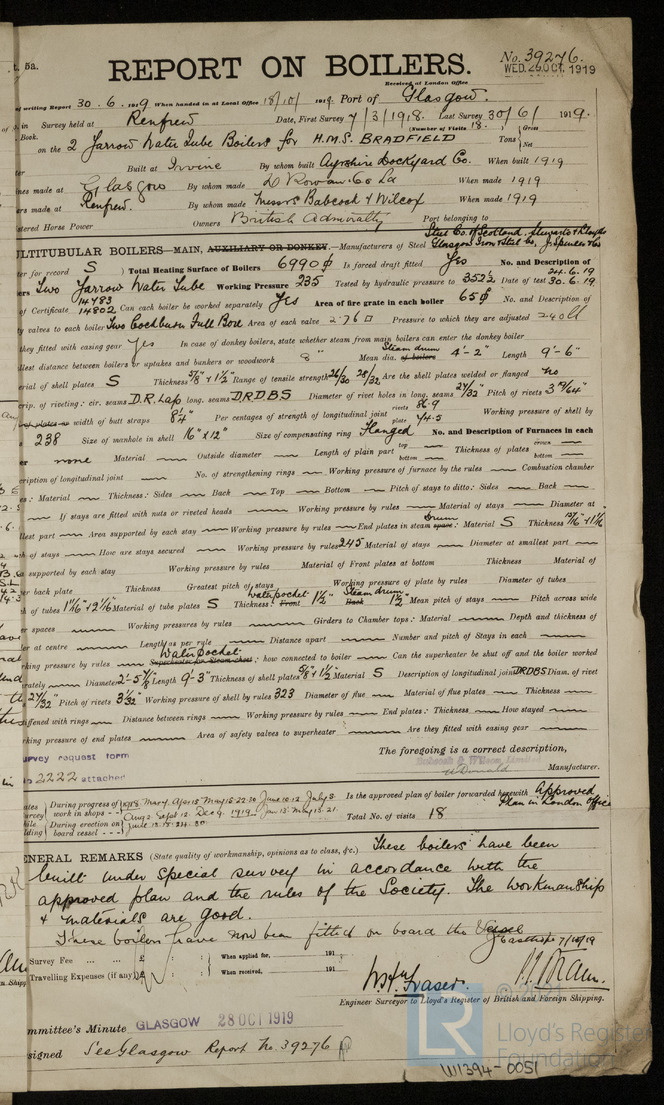 t. 5a.
REPORT ON BOILERS.
No. 39276.
Received at London Office
WED. 29 OCT. 1919
of writing Report 30 . 6 . 1919 When handed in at Local Office 15/10/ 1919. Port of Glasgow.
in Survey held at Renfrew Date, First Survey 7/3/1918. Last Survey 30/6/ 1919.
Book. (Number of Visits 18.
on the 2 Yarrow Water Tube Boilers for H.M.S. BRADFIELD Tons Gross Net
Built at Irvine By whom built Ayrshire Dockyard Co. When built 1919
ines made at Glasgow By whom made D Rowan & Co Ld When made 1919
ers made at Renfrew. By whom made Messrs Babcock & Wilcox When made 1919
stered Horse Power Owners British Admiralty Port belonging to
Steel Co. of Scotland. Stewarts & Lloyds
ULTITUBULAR BOILERS—MAIN, AUXILIARY OR DONKEY.—Manufacturers of Steel Glasgow Iron & Steel Co, J. Spencer & Co
ter for record S ) Total Heating Surface of Boilers 6990 ϕ Is forced draft fitted Yes No. and Description of
ers Two Yarrow Water Tube Working Pressure 235 Tested by hydraulic pressure to 352½ Date of test 24.6.19 30.6.19
of Certificate 14783 14802 Can each boiler be worked separately Yes Area of fire grate in each boiler 65 ϕ No. and Description of
ty valves to each boiler Two Cockburn Full Bore Area of each valve 2.76 □ Pressure to which they are adjusted 240 lb
they fitted with easing gear Yes In case of donkey boilers, state whether steam from main boilers can enter the donkey boiler
llest distance between boilers or uptakes and bunkers or woodwork 8" Mean dia. of boilers Steam drum 4'-2" Length 9'-6"
erial of shell plates S Thickness 5/8" & 1½" Range of tensile strength 26/30 28/32 Are the shell plates welded or flanged No
crip. of riveting: cir. seams D.R. Lap long. seams DRDBS Diameter of rivet holes in long. seams 27/32" Pitch of rivets 3 9/64"
width of butt straps 8¼" Per centages of strength of longitudinal joint rivets 86.9 plate 74.5 Working pressure of shell by
s 238 Size of manhole in shell 16" x 12" Size of compensating ring Flanged No. and Description of Furnaces in each
er none Material Outside diameter Length of plain part top bottom Thickness of plates crown bottom
cription of longitudinal joint No. of strengthening rings Working pressure of furnace by the rules Combustion chamber
es: Material Thickness: Sides Back Top Bottom Pitch of stays to ditto: Sides Back
If stays are fitted with nuts or riveted heads Working pressure by rules Material of stays Diameter at
llest part Area supported by each stay Working pressure by rules End plates in steam space: drum Material S Thickness 15/16" & 1 1/16"
h of stays How are stays secured Working pressure by rules 245 Material of stays Diameter at smallest part
a supported by each stay Working pressure by rules Material of Front plates at bottom Thickness Material of
er back plate Thickness Greatest pitch of stays Working pressure of plate by rules Diameter of tubes
h of tubes 1 11/16" & 2 1/16" Material of tube plates S Thickness: Front water pocket 1½" Back Steam drum 1½" Mean pitch of stays Pitch across wide
er spaces Working pressures by rules Girders to Chamber tops: Material Depth and thickness of
der at centre Length as per rule Distance apart Number and pitch of Stays in each
king pressure by rules Superheater or Steam chest Water Pocket: how connected to boiler Can the superheater be shut off and the boiler worked
rately Diameter 2'-5 7/8" Length 9'-3" Thickness of shell plates 5/8" & 1½" Material S Description of longitudinal joint DRDBS Diam. of rivet
27/32" Pitch of rivets 3 1/32" Working pressure of shell by rules 323 Diameter of flue Material of flue plates Thickness
iffened with rings Distance between rings Working pressure by rules End plates: Thickness How stayed
rking pressure of end plates Area of safety valves to superheater Are they fitted with easing gear
urvey request form
2222 attached
The foregoing is a correct description,
Babcock & Wilcox Limited
Manufacturer.
During progress of work in shops - - 1918 Mar 7. Apr 15 May 15.22.30 June 10.12 July 5 Is the approved plan of boiler forwarded herewith Approved Plan in London Office
Aug 2 Sept 12 Dec 9. 1919 - Jan 13. May 15.21.
During erection on board vessel - - - June 12.18.24.30 Total No. of visits 18
ENERAL REMARKS (State quality of workmanship, opinions as to class, &c.) These boilers have been
built under special survey in accordance with the
approved plan and the rules of the Society. The workmanship
& materials are good.
These boilers have now been fitted on board the Vessel
Survey Fee ... ... £ : : When applied for, 191
Travelling Expenses (if any) £ : : When received, 191
Wm Fraser.
Engineer Surveyor to Lloyd's Register of British and Foreign Shipping.
mmittee's Minute GLASGOW 28 OCT 1919
signed See Glasgow Report No. 39276
© 2021
LR
Lloyd's Register
Foundation
W1394-0051